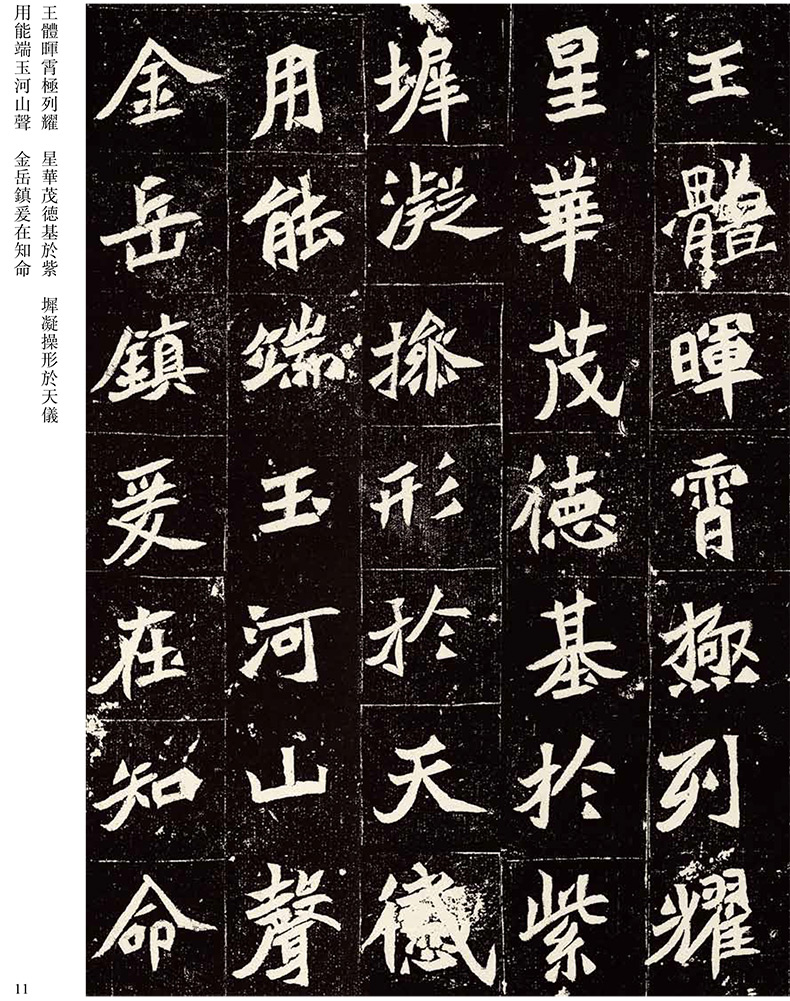 王體暉霄極列耀
星華茂徳基於紫
墀凝操形於天儀
用能端玉河山聲
金岳鎮爰在知命
王體暉霄極列耀 星華茂徳基於紫 墀凝操形於天儀
用能端玉河山聲 金岳鎮爰在知命
11